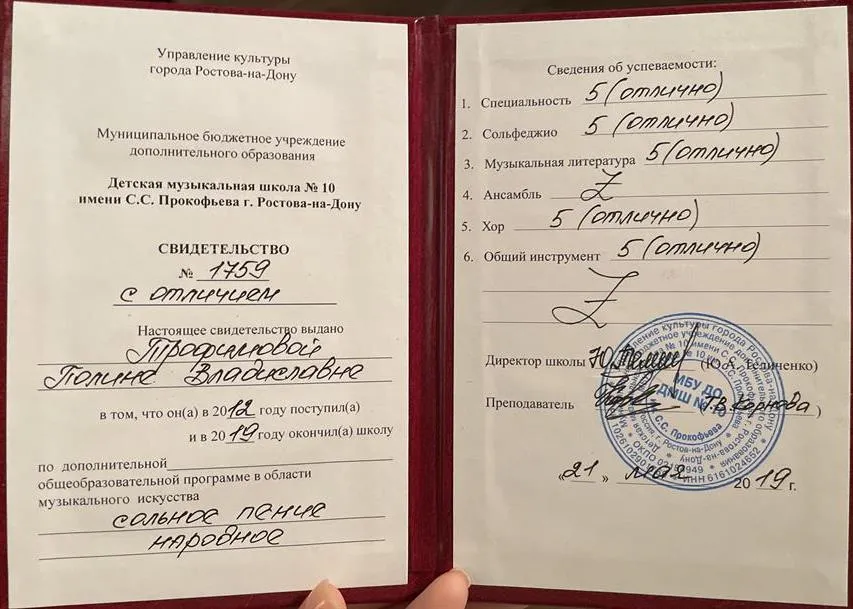 Управление культуры
города Ростова-на-Дону
Муниципальное бюджетное учреждение
дополнительного образования
Детская музыкальная школа № 10
имени С.С. Прокофьева г. Ростова-на-Дону
СВИДЕТЕЛЬСТВО
№ 1759
с отличием
Настоящее свидетельство выдано
Трофимовой
Полине Владиславне
в том, что он(а) в 2012 году поступил(а)
и в 2019 году окончил(а) школу
по дополнительной
общеобразовательной программе в области
музыкального искусства
сольное пение
народное
Сведения об успеваемости:
1. Специальность 5 (отлично)
2. Сольфеджио 5 (отлично)
3. Музыкальная литература 5 (отлично)
4. Ансамбль Z
5. Хор 5 (отлично)
6. Общий инструмент 5 (отлично)
Z
Директор школы (Ю.А. Теличенко)
Преподаватель Т.В. Корнова)
МБУ ДО
ДМШ № 10
С.С. Прокофьева
ИНН 6161024652
«21» мая 2019 г.